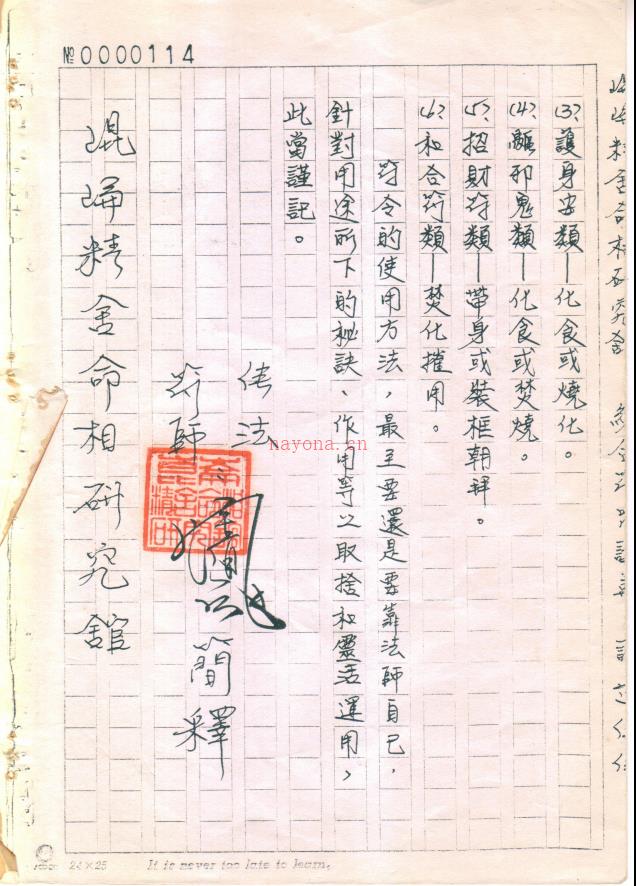 №0000114
(3)、護身安類—化食或燒化。
(4)、驅邪鬼類—化食或焚燒。
(5)、招財符類—帶身或裝框朝拜。
(6)、和合符類—焚化摧用。
符令的使用方法，最主要還是要靠法師自己，
針對用途所下的秘訣、作用等以取捨和靈活運用，
此當謹記。
傳法
符師：
簡釋
琨瑜精舍命相研究舘
nayona.cn
24×25
It is never too late to learn.